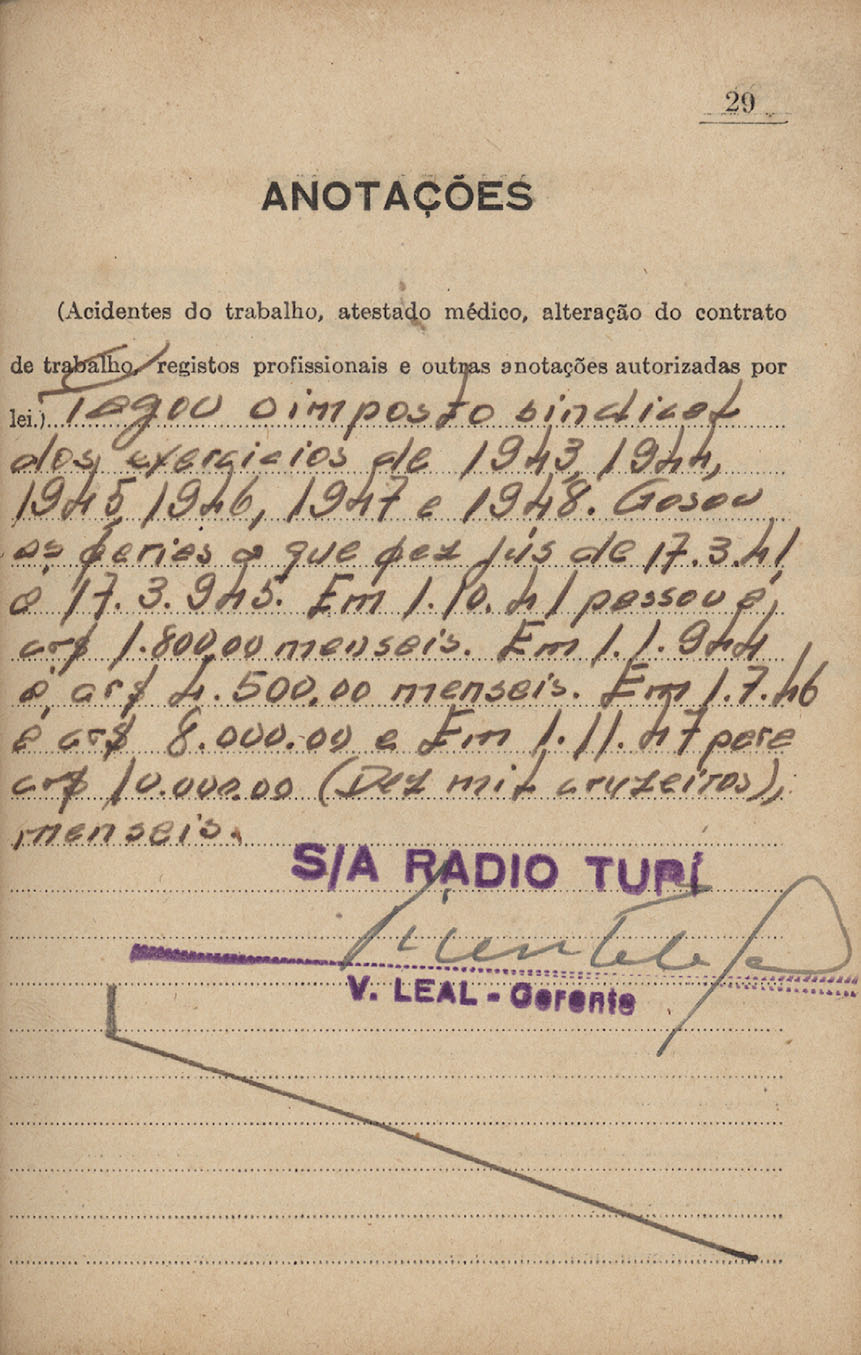 29
ANOTAÇÕES
(Acidentes do trabalho, atestado médico, alteração do contrato
de trabalho, registos profissionais e outras anotações autorizadas por
lei.) Pagou o imposto sindical
dos exercicios de 1943, 1944,
1945, 1946, 1947 e 1948. Gosou
as ferias a que fez jús de 17.3.41
á 17.3.945. Em 1.10.41 passou á
cr$ 1.800,00 mensais. Em 1.1.944
á cr$ 4.500,00 mensais. Em 1.7.46
á cr$ 8.000.00 e Em 1.11.47 para
cr$ 10.000.00 (Dez mil cruzeiros),
mensais.
S/A RADIO TUPÍ
V. LEAL - Gerente